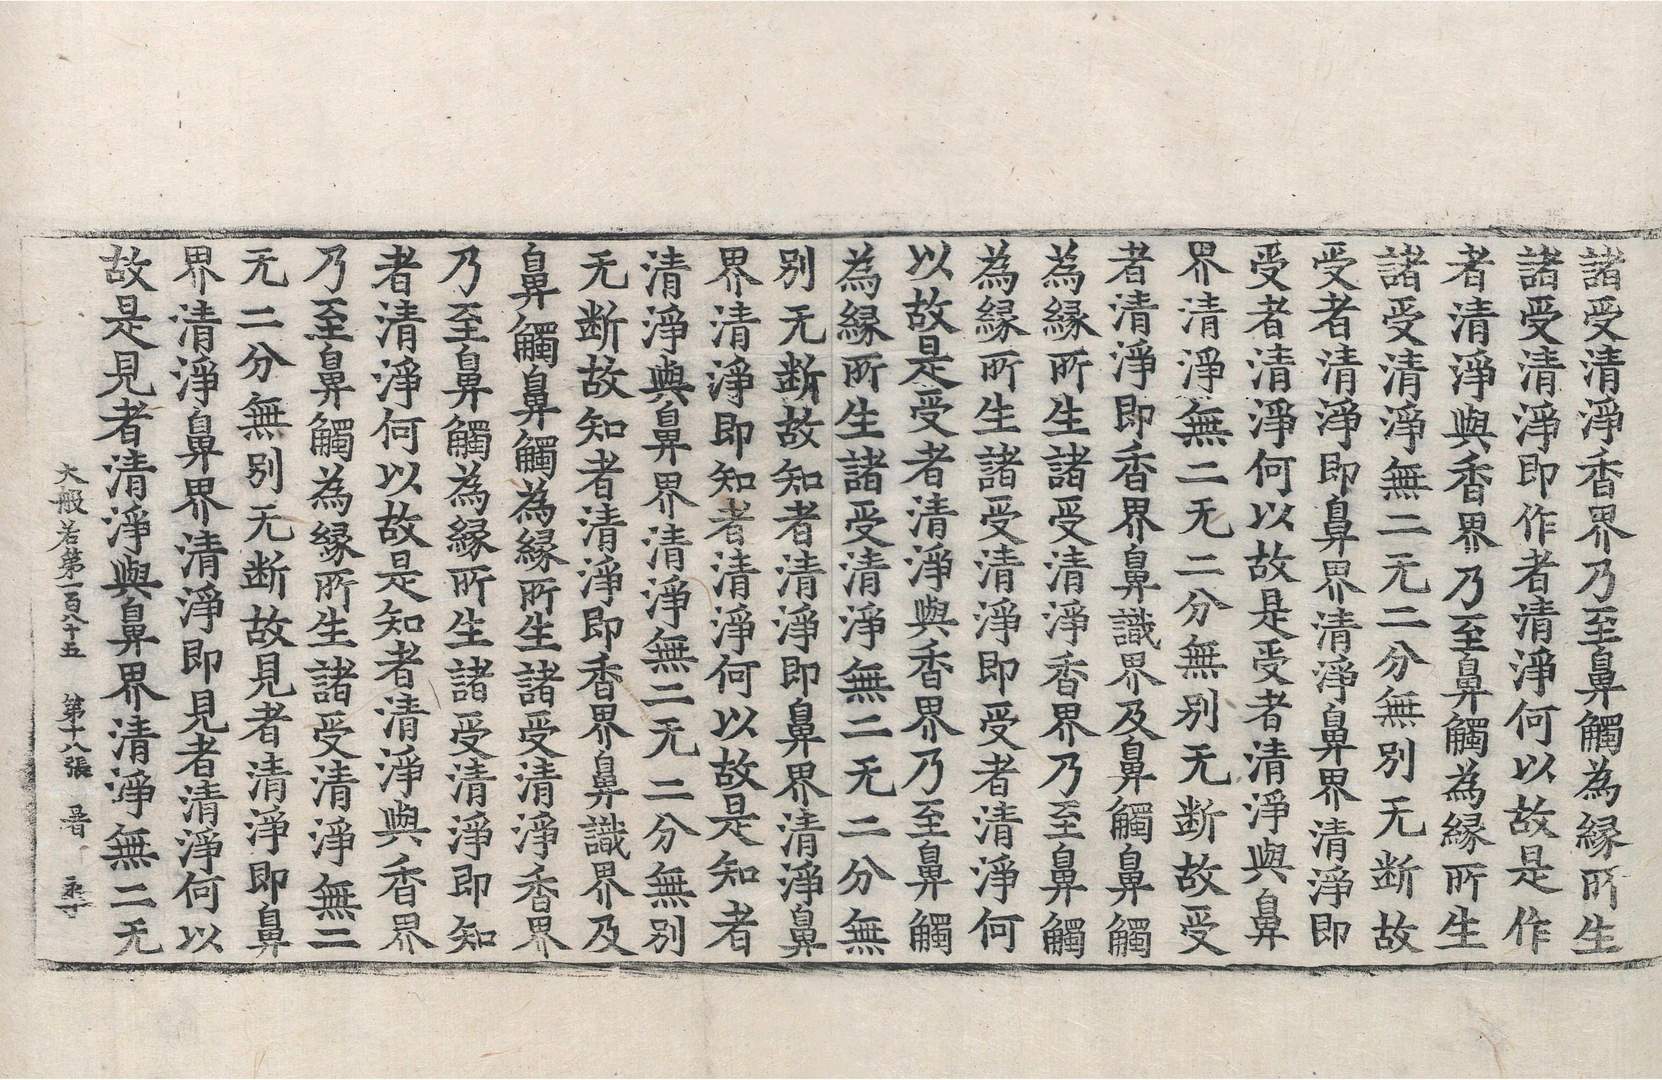 諸受清淨香界乃至鼻觸為緣所生
諸受清淨即作者清淨何以故是作
者清淨與香界乃至鼻觸為緣所生
諸受清淨無二无二分無別无断故
受者清淨即鼻界清淨鼻界清淨即
受者清淨何以故是受者清淨與鼻
界清淨無二无二分無別无断故受
者清淨即香界鼻識界及鼻觸鼻觸
為緣所生諸受清淨香界乃至鼻觸
為緣所生諸受清淨即受者清淨何
以故是受者清淨與香界乃至鼻觸
為緣所生諸受清淨無二无二分無
別无断故知者清淨即鼻界清淨鼻
界清淨即知者清淨何以故是知者
清淨與鼻界清淨無二无二分無別
无断故知者清淨即香界鼻識界及
鼻觸鼻觸為緣所生諸受清淨香界
乃至鼻觸為緣所生諸受清淨即知
者清淨何以故是知者清淨與香界
乃至鼻觸為緣所生諸受清淨無二
无二分無別无断故見者清淨即鼻
界清淨鼻界清淨即見者清淨何以
故是見者清淨與鼻界清淨無二无
大般若第一百八十五 第十八張